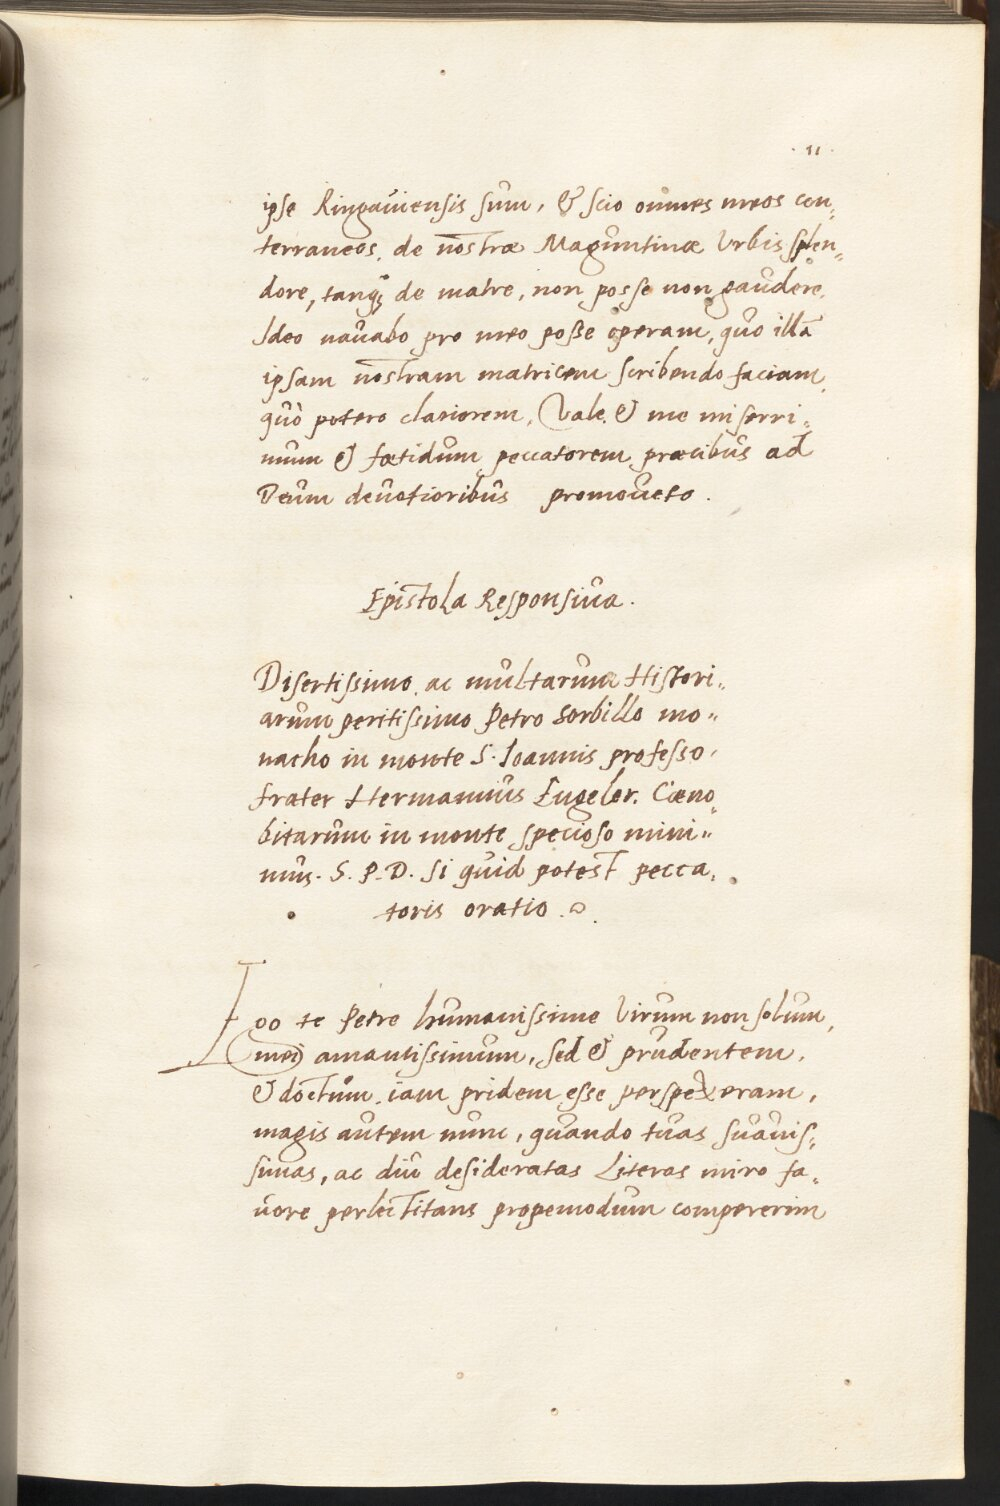 . 11 .
ipse Ringauiensis sum, & scio omnes meos con„
terraneos, de nostræ Maguntinæ Vrbis splen„
dore, tanq̃ȝ de matre, non posse non gaudere.
Ideo nauabo pro meo posse operam, quo illã
ipsam nostram matricem scribendo faciam,
quò potero clariorem, Vale. & me miserri„
mum & fœtidum peccatorem præcibus ad
Deum deuotioribus promoueto.
Epistola Responsiua.
Disertissimo, ac multarum Histori„
arum peritissimo Petro Sorbillo mo„
nacho in monte S. Ioannis professo,
frater Hermannus Engeler. Cœno„
bitarum in monte specioso mini„
mus. S. P. D. si quid potest pecca„
toris oratio.
Ego te Petre humanissime Virum non solum
mei amantissimum, sed & prudentem,
& doctum, iam pridem esse perspexeram,
magis autem nunc, quando tuas suauis„
simas, ac diu desideratas Literas miro fa„
uore perlectitans propemodum compererim